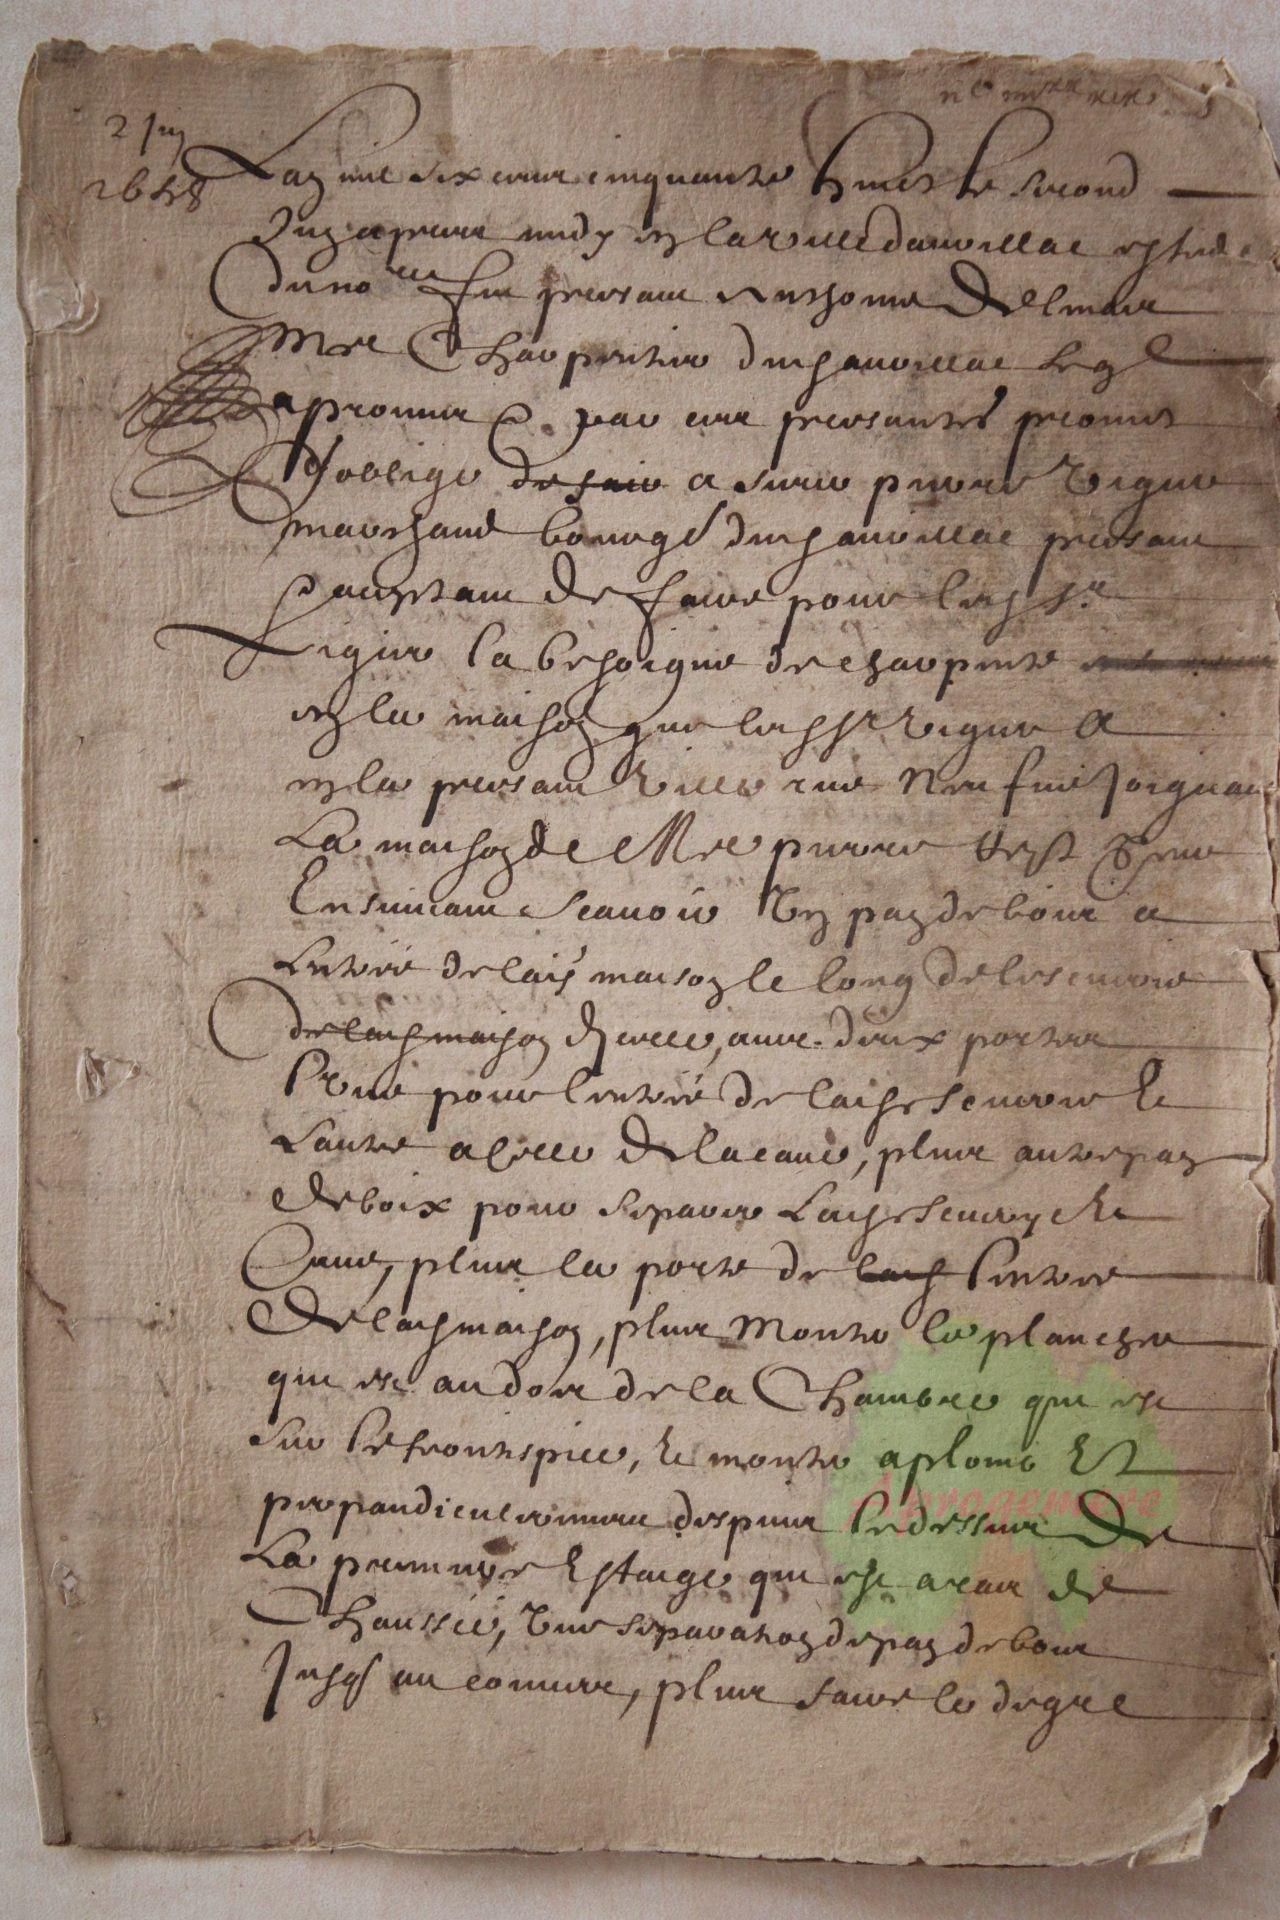 2 Juin
1658
L'an mil six cens cinquante huict le second
Juin apres midy en la ville d'auvillar
du no^re fut present Anthoine Delmas
M^re Charpentier dud auvillar leq^l
par ces presantes promet
s'oblige de faire a sieur pierre Vigue
marchand bourg^s dud auvillar presant
acceptant de faire pour led s^r
Vigue la besoigne de charpente
en la maison que led s^r Vigue a
en la presant ville rue neufve joignant
La maison de M^re pierre
Ensuivant scavoir Un pan de bois a
Lentree de lad maison le long de lescurie
de lad maison d'icelle, avec deux portes
L'une pour lentree de lad escurie Et
Lautre a celle de la cave, plus autre pan
de boix pour separer Lad escurye Et
Cave, plus la porte de lad l'entree
de lad maison, plus Monter le plancher
qui est au dos de la Chambre qui est
sur le frontispice, Et monter a plomb Et
perpandiculerement despuis le dessus de
La premiere Estaige qui est a rais de
Chaussee, Une separation de pan de bois
Jusq^s au couvert, plus faire le degre
Aprogemere